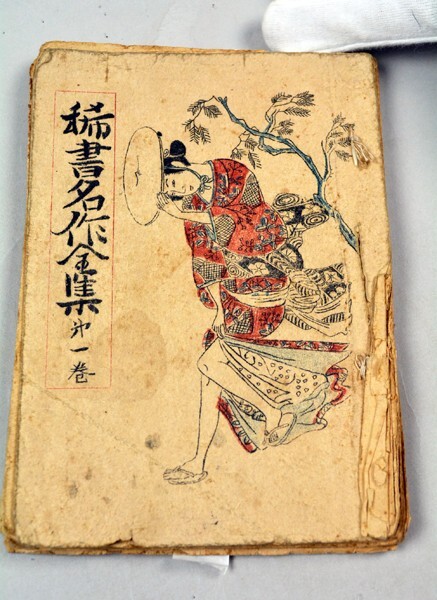 稀書名作全集 第一巻